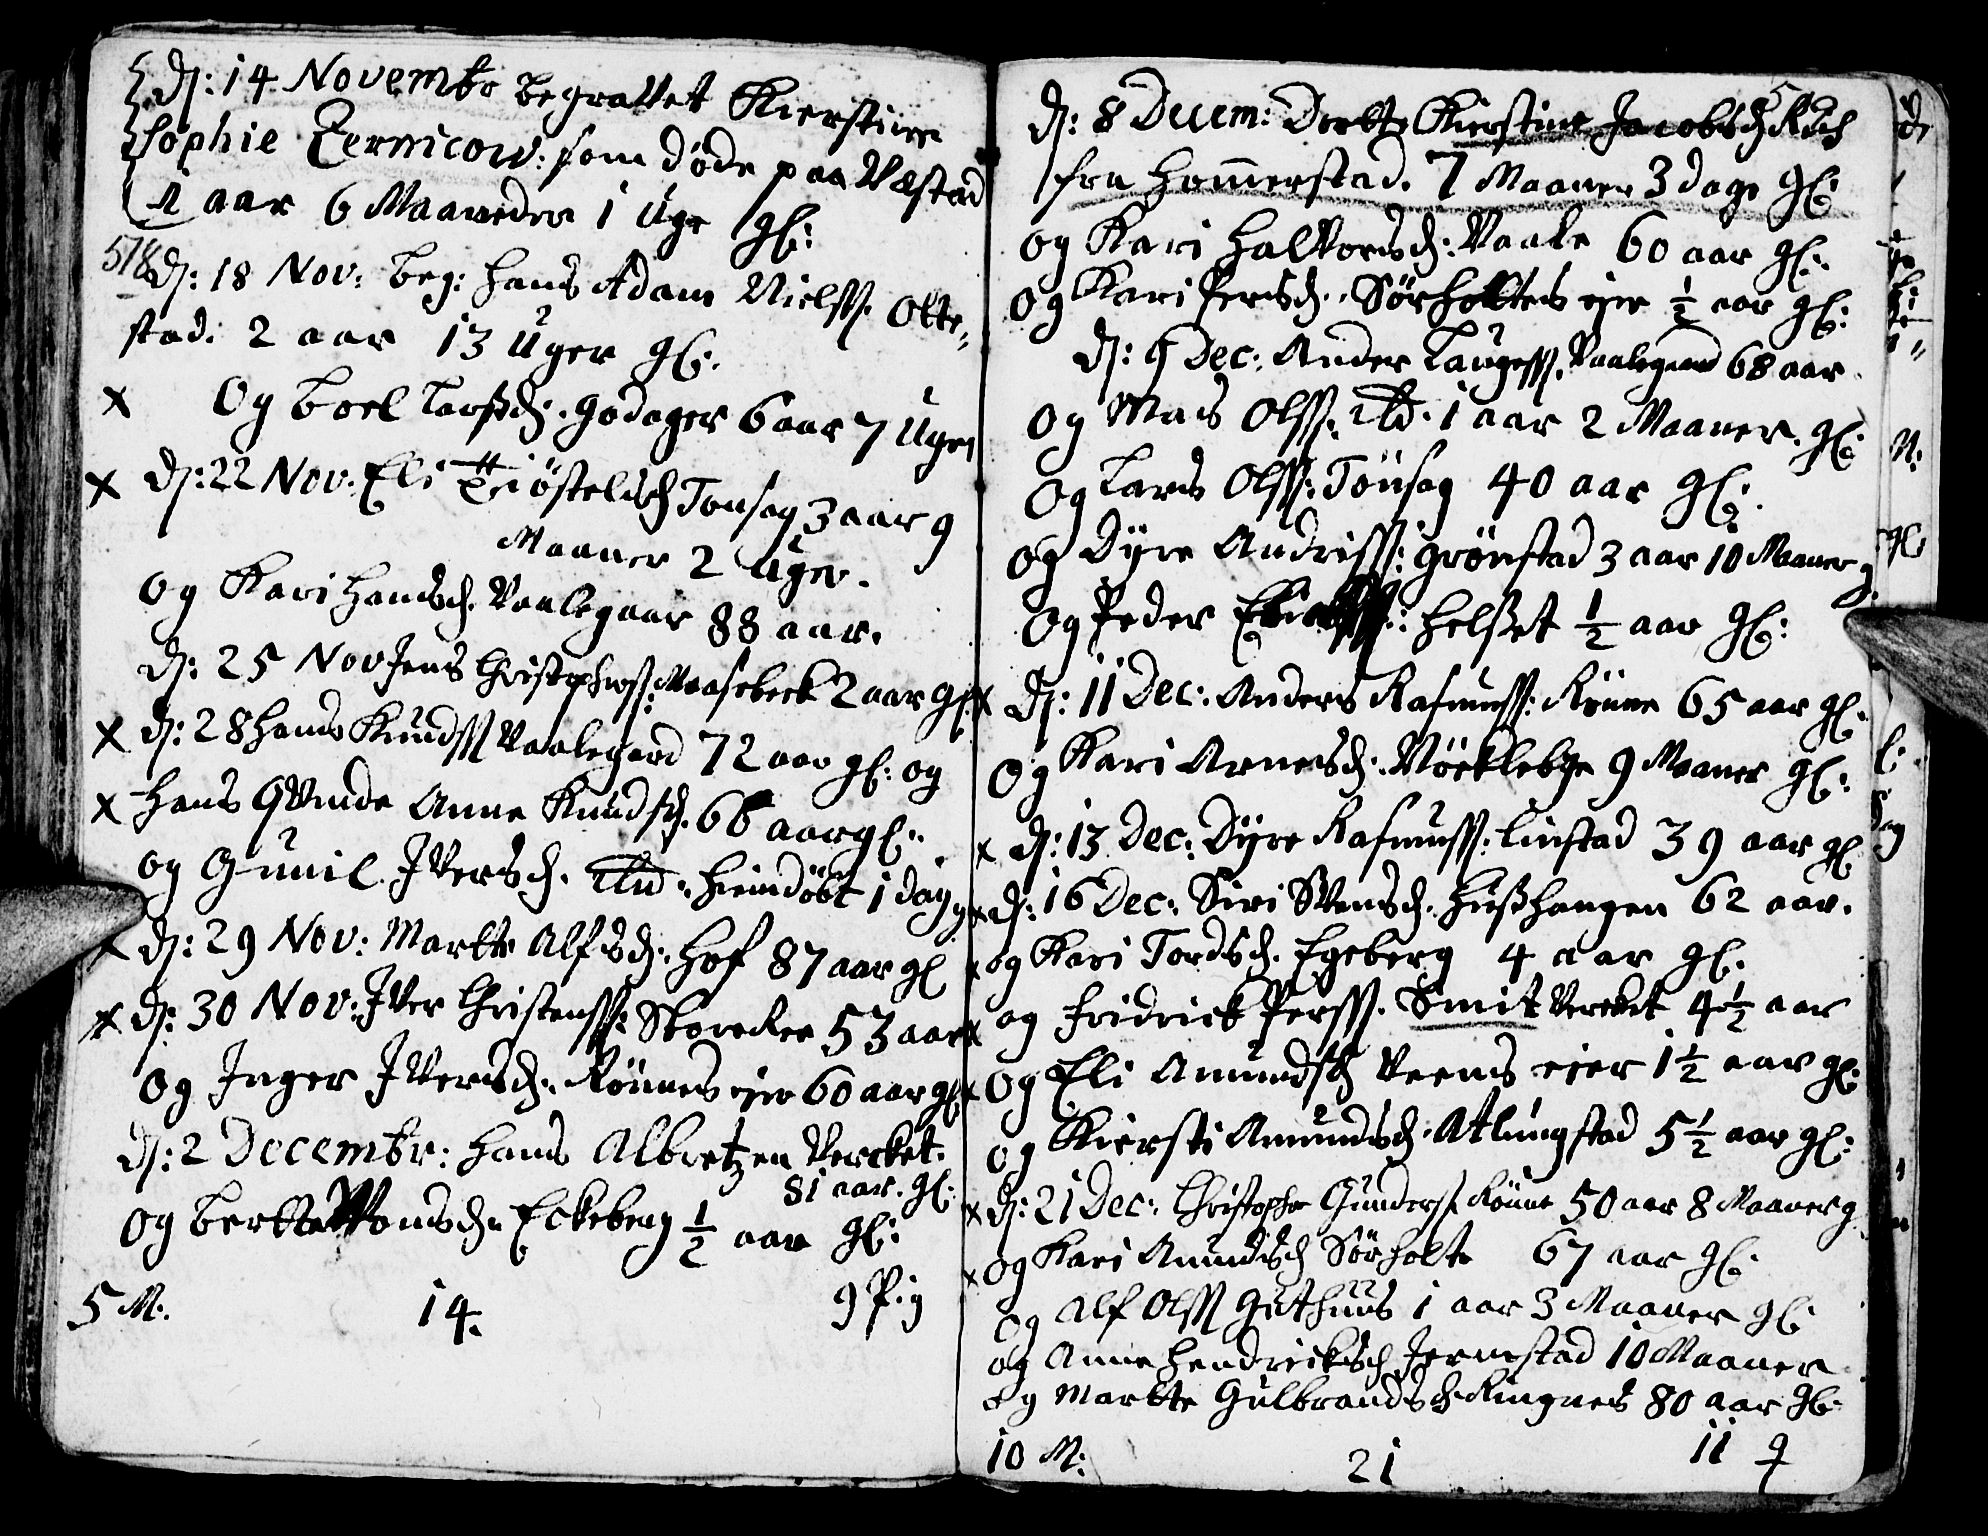 d: 14 Novembr begravet Kierstine
Sophie Zernicow: som døde paa Næstad
1 aar 6 Maaneder 1 Uge gl:
518 d: 18 Nov: beg: Hans Adam Nielss: Otte=
stad: 2 aar 13 Uger gl:
x Og Boel Larsd: Godager 6 aar 7 Uger
x d: 22 Nov: Eli Tiøstelsd Tønsag 3 aar 9
Maaner 2 Uger.
Og Kari Hansd: Vaalegaar 88 aar.
d: 25 Nov Jens Christophers: Maasebeck 2 aar gl:
x d: 28 Hans Knudss Vaalegard 72 aar gl: og
x Hans Qvinde Anne Knudsd: 66 aar gl:
og Gunil Iversd: ibd: hiemdøbt 1 dag g
x d: 29 Nov: Martte Alfsd: Hof 87 aar gl
x d: 30 Nov: Iver Christenss: 53 aar
Og Inger Iversd: Rönnes eier 60 aar gl
d: 2 Decembr: Hans Albretzen Vercket
81 aar. gl:
Og Bertte Monsd: Eckeberg ½ aar gl:
5 M: 14. 9 P:g
d: 8 Decem: Dortte Kierstine Jacobsd
fra Hommerstad. 7 Maaner 3 dage gl:
og Kari Halvorsd: Vaale 60 aar gl:
og Kari Persd: Sörholtes eie ½ aar gl:
d: 9 Dec: Ander Laugess. Vaalegard 68 aar
og Mads Olss: ibd. 1 aar 2 Maaner. gl:
og Lars Olss: Tönsag 40 aar gl:
og Dyre Andriss: Grönstad 3 aar 10 Maaner g
Og Peder Helset ½ aar gl:
x d: 11 Dec: Anders Rasmuss: Rönne 65 aar gl:
Og Kari Arnesd: Nöcklebye 9 Maaner gl:
x d: 13 Dec: Dyre Rasmuss: Linstad 39 aar gl
x d: 16 Dec: Siri Svensd: Hushangen 62 aar.
x og Kari Tordsd: Egeberg 4 aar gl:
x og Fridrick Perss. Smit Vercket 4½ aar
x Og Eli Amundsd Veens eier 1½ aar gl:
og Kiersti Amundsd: Atlungstad 5½ aar gl:
x d: 21 Dec: Christopher Gunderss Rönne 50 aar 8 Maaner g
x og Kari Amundsd Sörholte 67 aar gl:
og Alf Olss Guthuus 1 aar 3 Maaner gl:
og Anne Hendricksd Jermstad 10 Maaner
og Martte Gulbrandsd Ringnes 80 aar gl:
10 M: 21 11 ♀